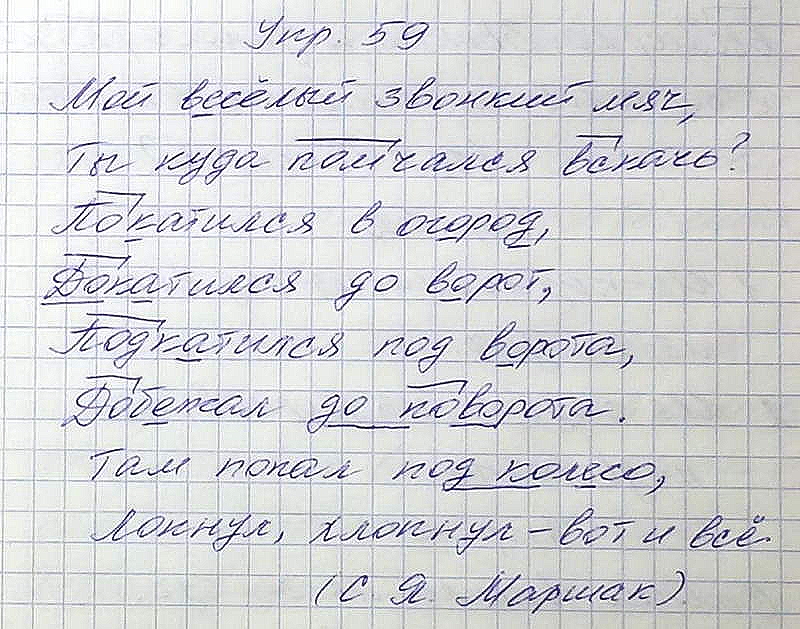 Упр. 59
Мой весёлый звонкий мяч,
Ты куда помчался вскачь?
Покатился в огород,
Докатился до ворот,
Подкатился под ворота,
Добежал до поворота.
Там попал под колесо,
Лопнул, хлопнул – вот и всё.
(С. Я. Маршак)